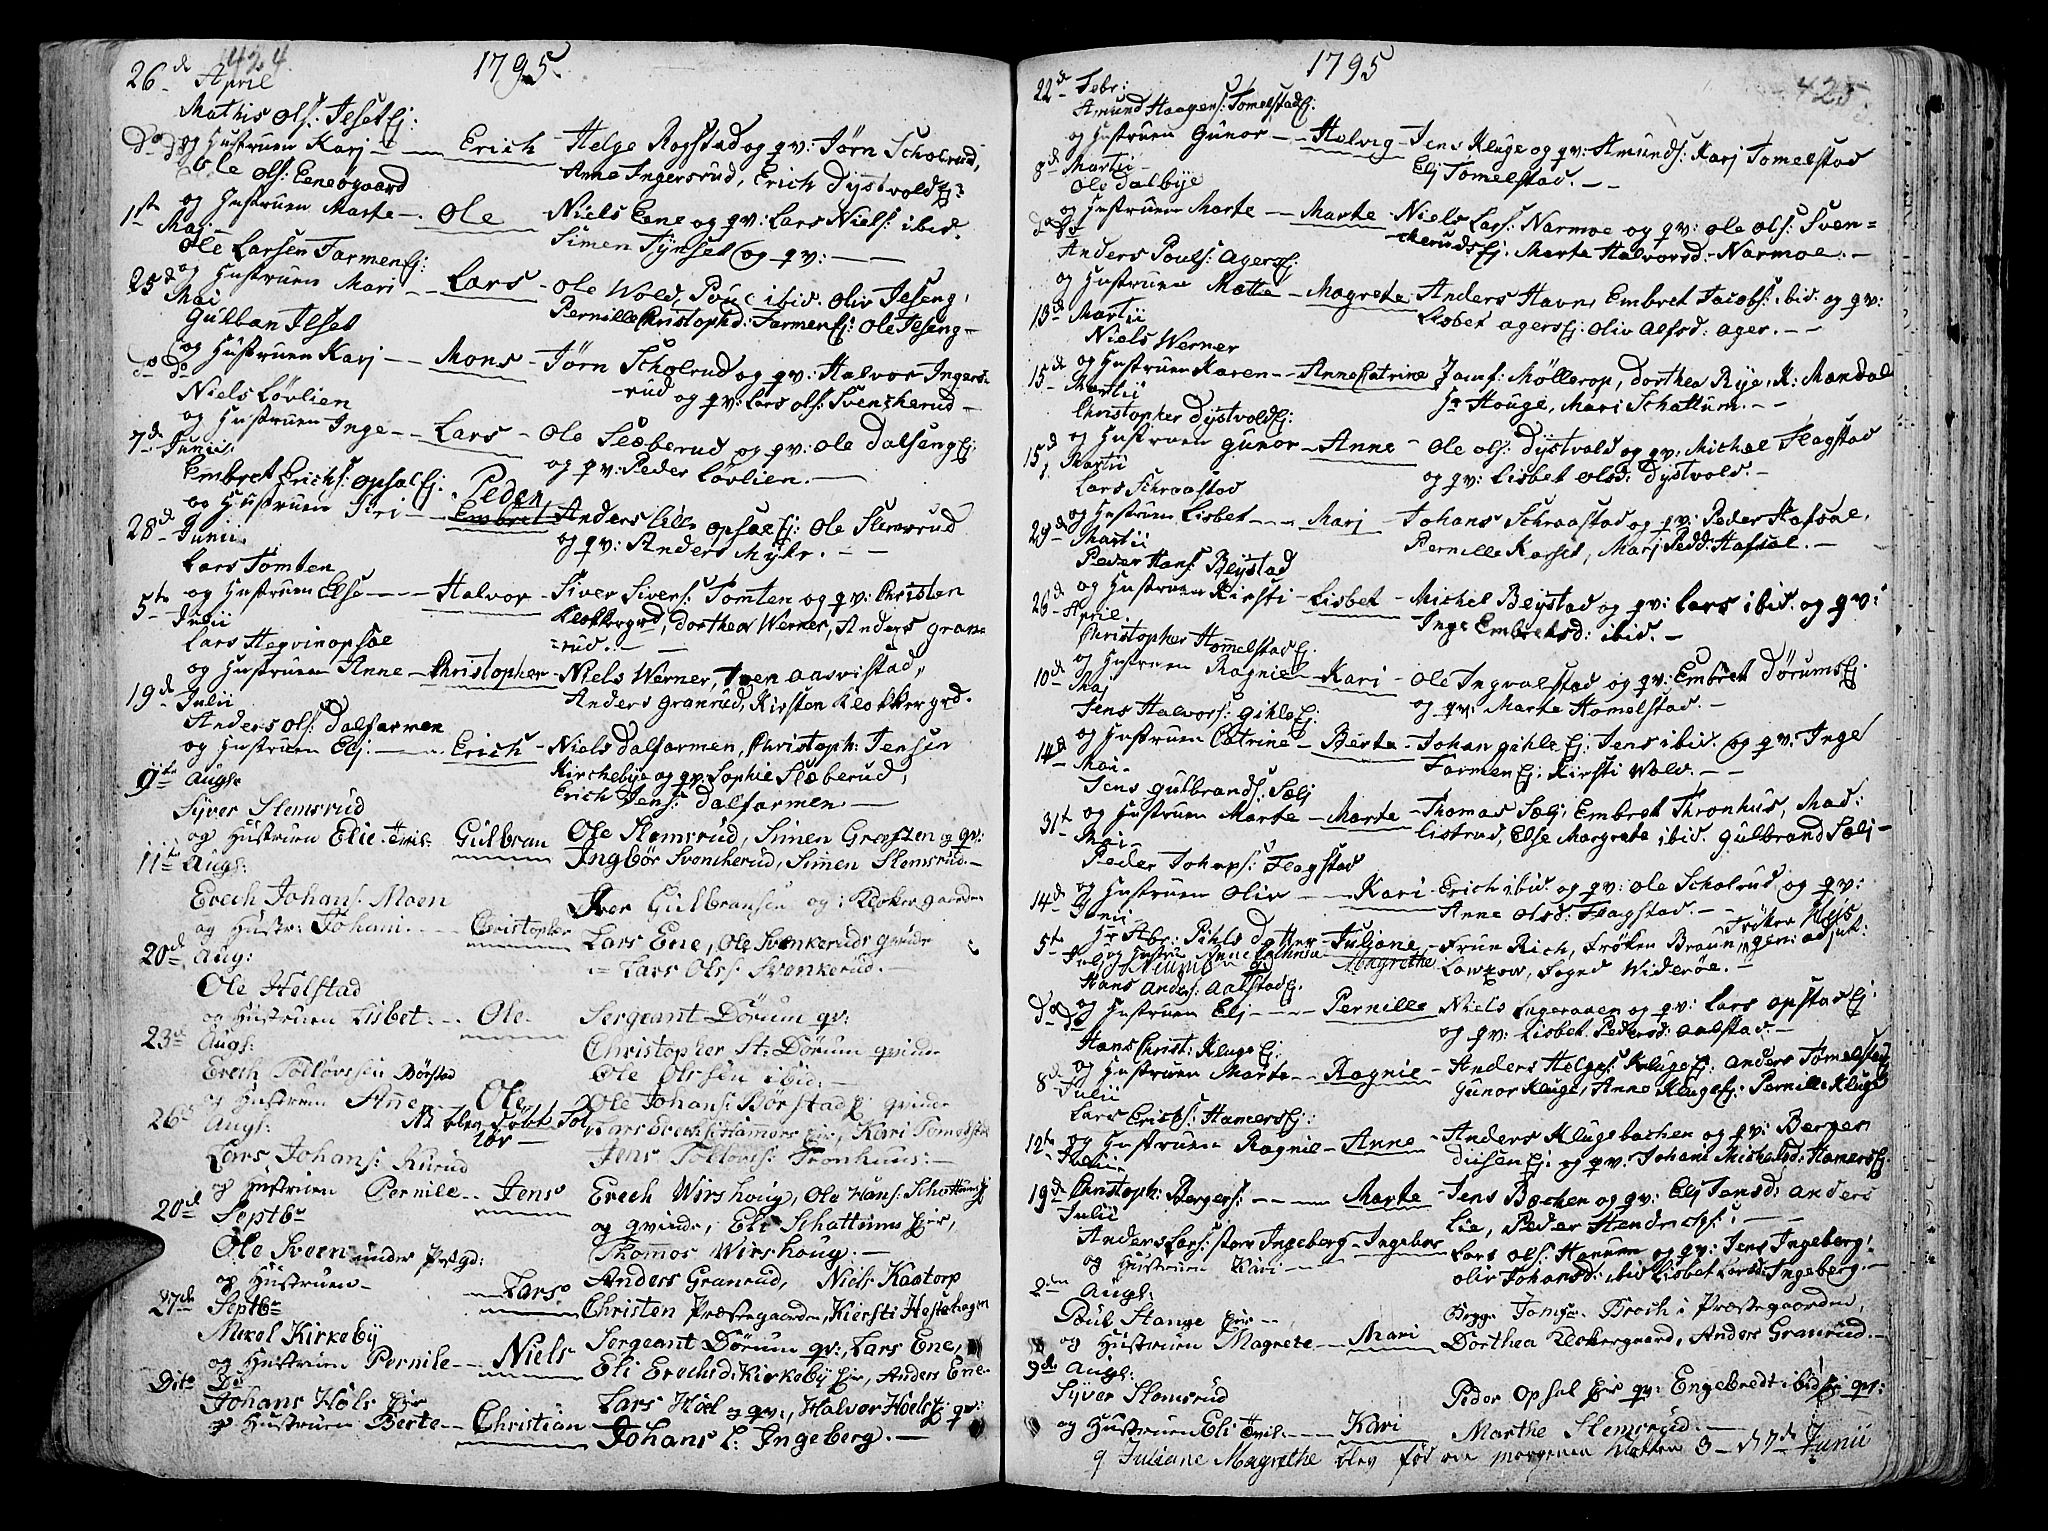 424.
1795.
26de April
Mathis Ols: Ilset Ej:
og Hustruen Karj — Erich — Helge Rogstad og qv: Jörn Scholrud,
Anne Ingersrud, Erich Dystvold Ej:
do do Ole Ols: Eenesgaard
og Hustruen Marte — Ole — Niels Eene og qv: Lars Niels: ibid.
Simen Tynset og qv: —
1ste Maj
Ole Larsen Farmen Ej:
og Hustruen Mari — Lars — Ole Wold, Poul ibid. Oliv Jeseng,
Pernille Christophd: Farmen Ej: Ole Jeseng —
25de Mai
Gulbran Ilset
og Hustruen Karj — Mons — Jörn Scholrud og qv: Halvor Ingers-
rud og qv: Lars Ols: Svenkerud —
do do
Niels Lövlien
og Hustruen Inge — Lars — Ole Sloberud og qv: Ole Dalseng Ej:
og qv: Peder Lövlien. —
7de Junii
Embret Erichs: Opsal Ej:
Peder
og Hustruen Siri — Embret — Anders Lille Opsal Ej: Ole Slemsrud
og qv: Anders Myhr. —
28de Junii
Lars Tomten
og Hustruen Else — Halvor — Siver Sivers: Tomten og qv: Christen
Klokkergrd, Dorthea Werner, Anders Gran-
rud. —
5te Julii
Lars Hegvinopsal
og Hustruen Anne — Christopher — Niels Werner, Iver Aasvistad,
Anders Granrud, Kirsten Klokkergrd.
19de Julii
Anders Ols: Dalfarmen
og Hustruen Elj — Erich — Niels Dalfarmen, Christoph: Jensen
Kirchebye og qv: Sophie Sloberud,
Erich Jens: Dalfarmen —
9te Augs:
Syver Slemsrud
og Hustruen Elie — Gulbran — Ole Slemsrud, Simen Græsten og qv:
Ingbör Svenkerud, Simen Slemsrud —
11te Augs:
Erech Johans: Moen
og Hustr: Johani. — Christopher — Iver Gulbransen og i Klokkergaarden
Lars Ene, Ole Svenkeruds qvinde
Lars Ols: Svenkerud. —
20de Aug:
Ole Helstad
og Hustruen Lisbet. — Ole. — Sergeant Dörum qv:
Christopher St: Dörum qvinde
Ole Olsen ibid. —
23de Augs:
Erech Tollövsen Börstad
og Hustruen Anne. — Ole — Ole Johans: Börstad Ej qvinde
Lars Ereks: Hammers Eje, Kari Tomelstad
Jens Tollövs: Tronhuus. —
26de Augs:
Lars Johans: Rurud
og Hustruen Pernile — Jens — Erech Wirshoug, Ole Hans: Schattum Ej
og qvinde, Eli Schattums Eje,
Thommos Wirshoug. —
20de Septbr
Ole Sveen under Præstgd:
og Hustruen — Lars — Anders Granrud, Niels Kastorp
Christen Præstegaarden, Kiersti Hestehagen
27de Septbr
Mikel Kirkeby
og Hustruen Pernile — Niels — Sergeant Dörum qv:, Lars Ene,
Eli Erechsd: Kirkeby Eje, Anders Ene —
Dito Do
Johans Höls Eje
og Hustruen Berte — Christian — Lars Höel og qv:, Halvor Höels Ej qv:
Johans L: Ingeberg. —
1795
425.
22de Febr:
Amund Haagens: Tomelstad Ej.
og Hustruen Gunor — Helvig — Jens Kluge og qv: Amunds: Karj Tomelstad
Elj Tomelstad. —
8de Martii
Ole Dalbye
og Hustruen Marte — Marte — Niels Lars: Narmoe og qv: Ole Ols: Sven-
kerudsEj: Marte Halvorsd: Narmoe. —
do do
Anders Pouls: Agers Ej:
og Hustruen Matte — Magrete — Anders Havn, Embret Jacobs: ibid. og qv:
Lisbet Agers Ej: Oliv Alfsd: Ager. —
13de Martii
Niels Werner
og Hustruen Karen — Anne Catrine — Jomf: Möllerop, Dorthea Rye, K: Mandal
Hr Houge, Mari Schattum. —
15de Martii
Christopher Dystvold Ej:
og Hustruen Gunor — Anne — Ole Ols: Dystvold og qv: Michel Flagstad
og qv: Lisbet Olsd: Dystvold. —
15de Martii
Lars Schraastad
og Hustruen Lisbet — Marj — Johans Schraastad og qv: Peder Hafsal,
Pernille Karset, Marj Pedd: Hafsal. —
29de Martii
Peder Hans: Bejstad
og Hustruen Kirsti — Lisbet — Michel Bejstad og qv: Lars ibid. og qv:
Inge Embretsd: ibid. —
26de Aprile.
Christopher Homelstad Ej.
og Hustruen Ragnie — Kari — Ole Ingvalstad og qv: Embret Dörums Ej:
og qv: Marte Homelstad. —
10de Maj
Jens Halvors: Gihle Ej:
og Hustruen Catrine — Berte — Johan Gihle Ej: Jens ibid. og qv: Inge
Farmen Ej: Kirsti Wold. —
14de Mai.
Jens Gulbrands: Sælj
og Hustruen Marte — Marte — Thomas Sælj Embret Thronhus, Mad:
Listrud, Else Margrete ibid. Gulbrand Sælj —
31te Mai
Peder Johans: Flagstad
og Hustruen Oliv — Kari — Erich ibid. og qv: Ole Scholrud og qv:
Anne Olsd: Flagstad. —
14de Junii
Hr Abr: Pihls Dotter — Juliane Margrethe — Frue Rich, Fröken Braun,
Lowzow, Fogd Wideröe. —
5te Julj
Hans Anders: Aalstad Ej.
og Hustruen Elj — Pernille — Niels Lageraaen og qv: Lars Opstad Ej.
og qv: Lisbet Pedersd: Aalstad. —
do do
Hans Christ: Kluge Ej:
og Hustruen Marte — Ragnie — Anders Helges: Kluge Ej: Anders Tomelstad
Gunor Kluge, Anne Kluge Ej: Pernille Kluge
8de Julii
Lars Erichs: Hamers Ej:
og Hustruen Ragnie — Anne — Anders Klugsbachen og qv: Berger
Diisen Ej: og qv: Johane Michelsd: Hamers Ej.
12te Julii
Christoph: Bergers: — Marte — Jens Bachen og qv: Elj Jensd: Anders
Lie, Peder Hendrichs: —
19de Julii
Anders Lars: Store Ingeberg — Ingebor — Lars Ols: Hanum og qv: Jens Ingeberg:
og Hustruen Kari — Oliv Johansd: ibid Lisbet Larsd: Ingeberg. —
2den Augs:
Poul Stange Eje —
og Hustruen Magrete — Mari — Begge Jomfr: Broch i Præstegaarden,
Dorthea Klokkergaard, Anders Granrud. —
9de Augs:
Syver Slemsrud
og Hustruen Eli — Kari — Peder Opsal Eje qv: Engebredt ibid Ej qv:
Marthe Slemsrud. —
Juliane Magrethe blev föd om morgenen Klokken 3 — d 7de Junii